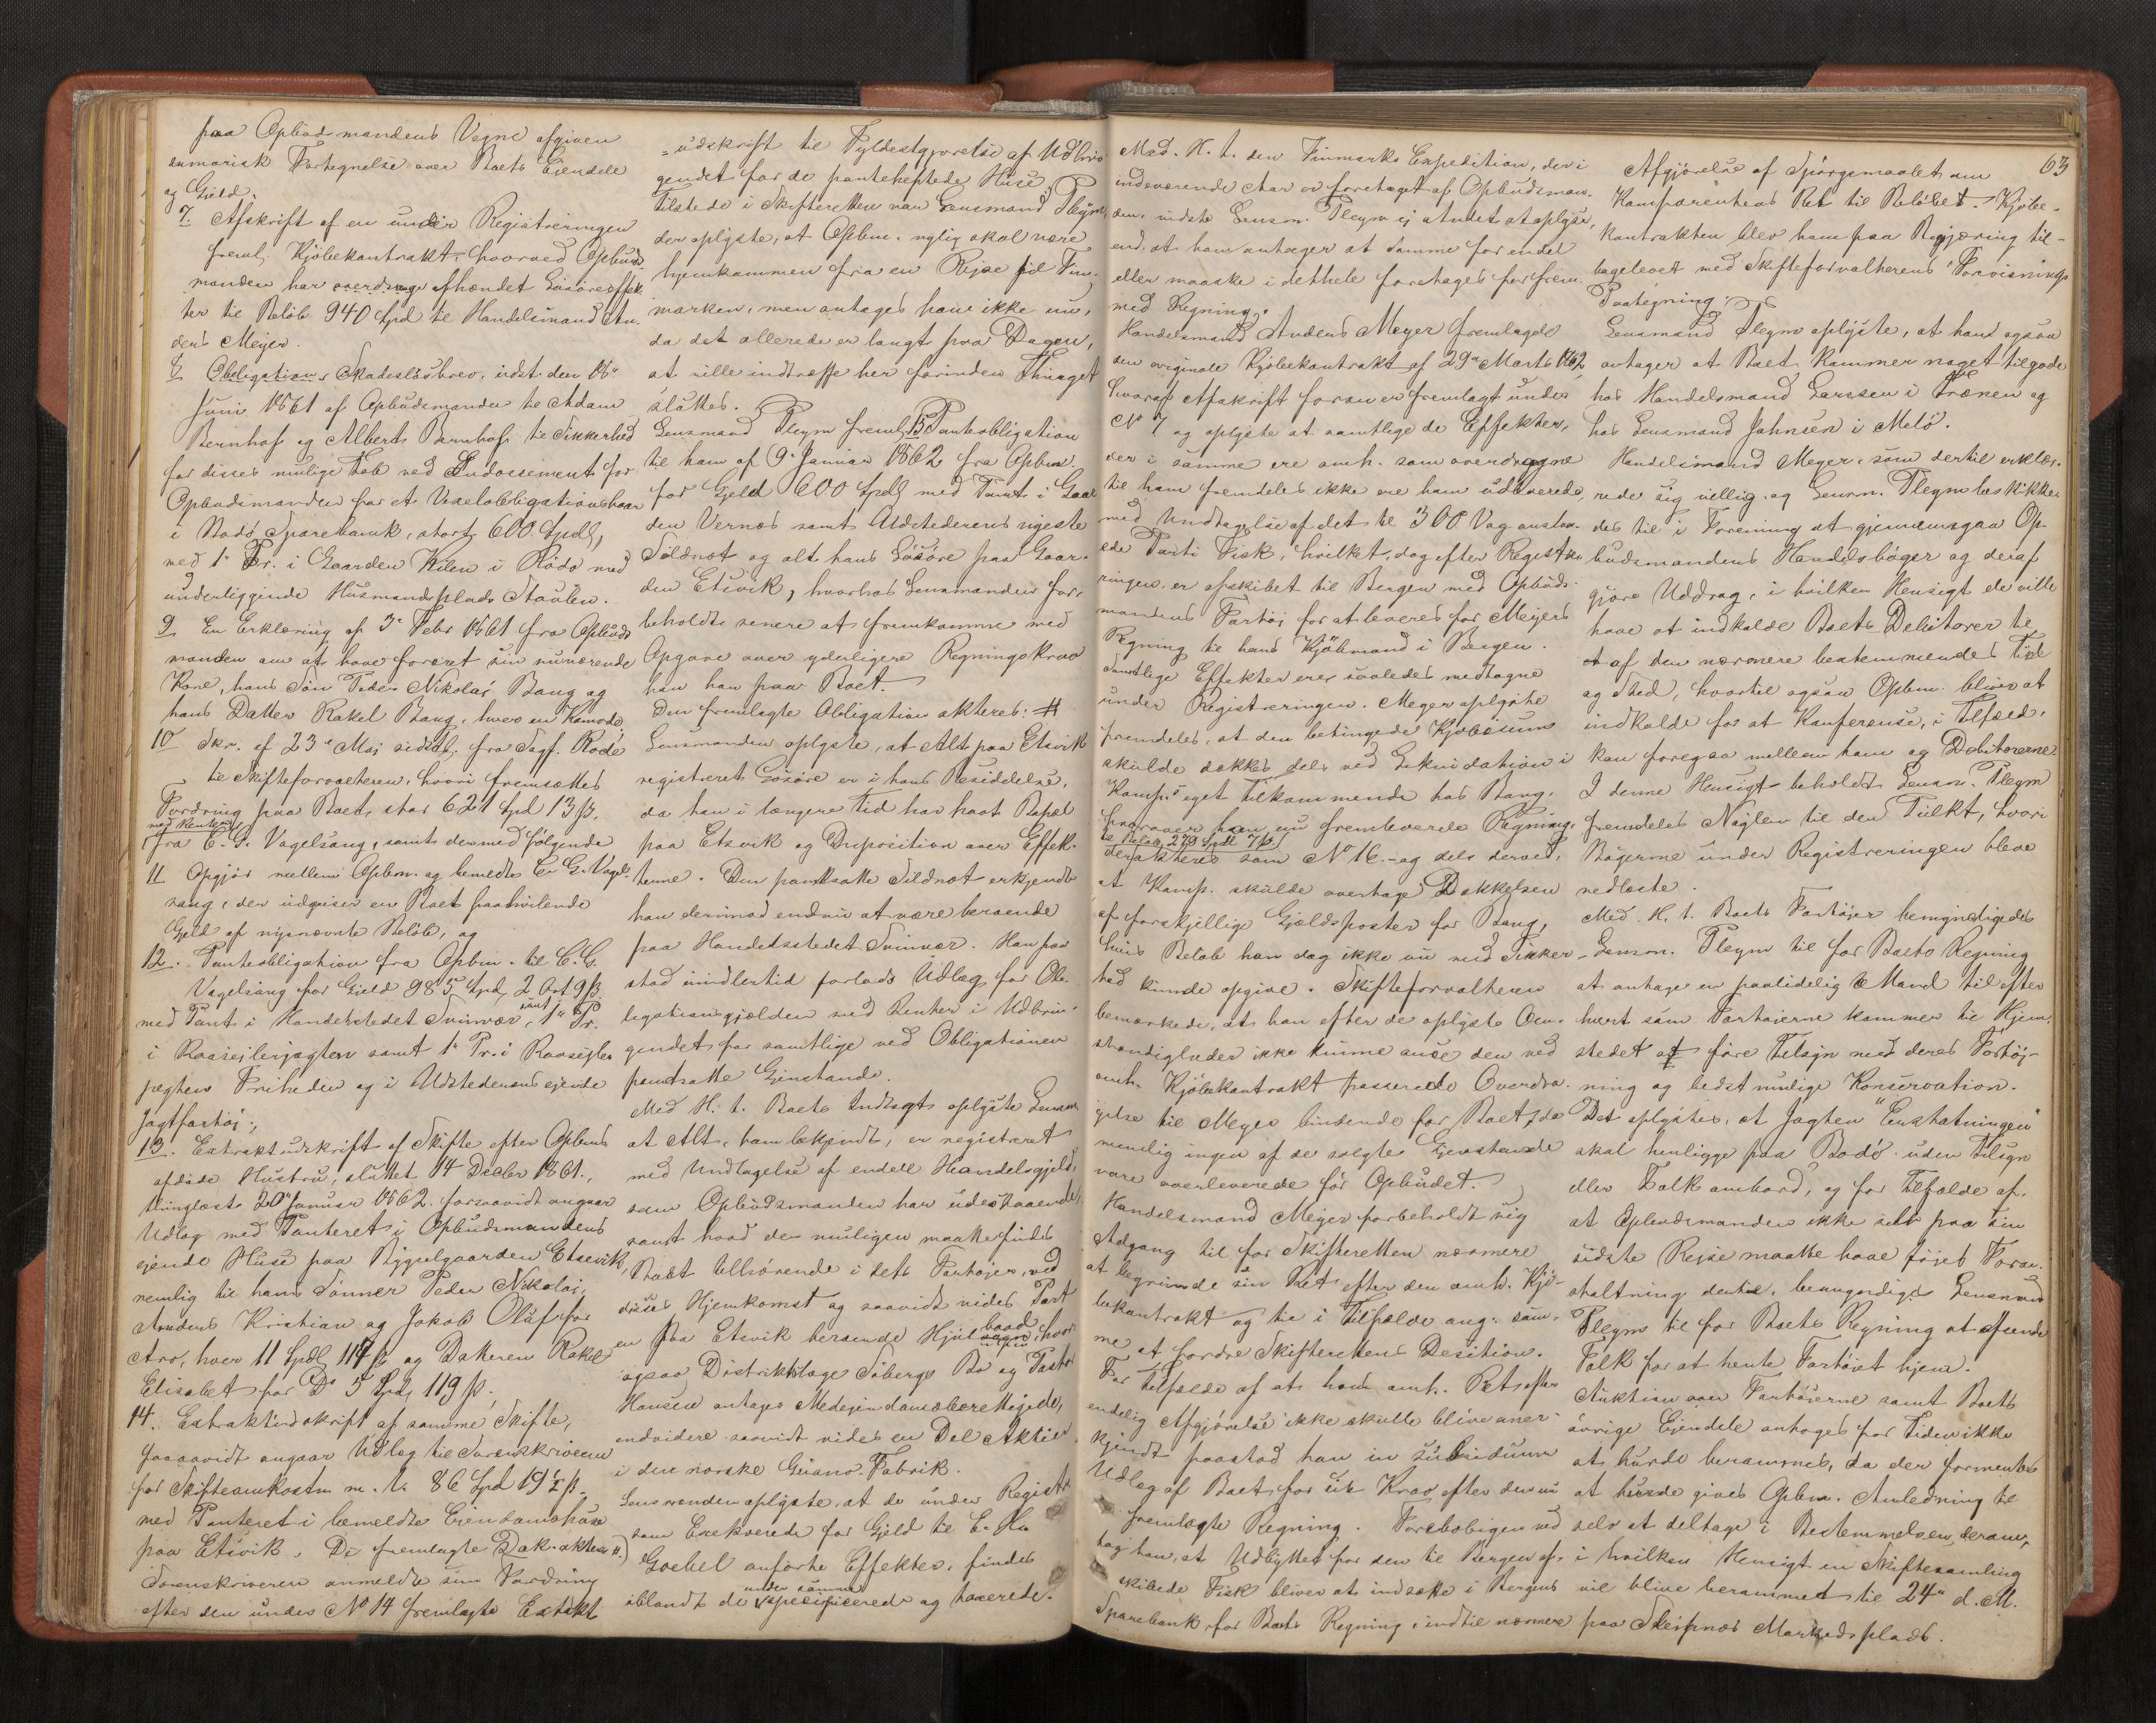 paa Opbudsmandens Vegne afgiven
sumarisk Fortegnelse over Boets Eiendele
og Gjeld.
7. Afskrift af en under Registreringen
freml. Kjöbekontrakt, hvorved Opbuds-
manden har overdrage afhændet Lösöreeffek
ter til Belöb 940 Spd til Handelsmand An-
ders Meyer.
8. Obligation, Skadeslösbrev, udst. den 18de
Juni 1861 af Opbudsmanden til Adam
Bernhof og Albert Bernhof til Sikkerhed
for disses mulige Tab ved Endossement for
Opbudsmanden for et Vexelobligationslaan
i Bodö Sparebank, stort 600 Spdl,
med 1ste Pr. i Gaarden Kilen i Rödö med
underliggende Husmandsplads Staulen.
9. En Erklæring af 3de Febr 1861 fra Opbuds
manden om at have foræret sin nuværende
Kone, hans Sön Peder Nikolai Bang og
hans Datter Rakel Bang, hver en Komode,
10 Skr. af 23de Mai sidstl. fra Sagf. Rode
til Skifteforvalteren, hvori fremsættes
Fordring paa Boet, stor 621 Spd 13 ß,
med Renter
fra C. G. Vogelsang, samt dermed fölgende
11 Opgjör mellem Opbm. og bemeldte C. G. Vogel-
sang, der udviser en Boet paahvilende
Gjeld af nysnævnte Belöb, og
12. Panteobligation fra Opbm. til C. G.
Vogelsang for Gjeld 985 Spd 2 Ort 9 ß
med Pant i Handelstedet Svinvær, samt 1ste Pr.
i Raaseilerjægten samt 1ste Pr. i Raaseiler
jægten Friheden og i Udstederens eiende
Jagtfartöi;
13. Extraktudskrift af Skifte efter Opbms
afdöde Hustru, sluttet 14 Decbr 1861.,
thinglæst 20de Januar 1862. forsaavidt angaar
Udlæg med Panteret i Opbudsmandens
eiende Huse paa Bygselgaarden Etsevik,
nemlig til hans Sönner Peder Nikolai,
Anders Kristian og Jakob Oluf for
Arv, hver 11 Spdl 114 ß og Datteren Rakel
Elisabet for Do 5 Spd 119 ß;
14. Extraktudskrift af samme Skifte,
forsaavidt angaar Udlæg til Sorenskriveren
for Skifteomkostn. m. V. 86 Spd 19½ ß.
med Panteret i bemeldte Eiendomshuse
paa Etsvik. De fremlagte Dok. akteres #.)
Sorenskriveren anmeldte sin Fordring
efter den under No 14 fremlagte Extrakt
=udskrift til Fyldestgjörelse af Udbrin-
gendet for de panteheftede Huse.
Tilstede i Skifteretten var Lensmand Pleym,
der oplyste, at Opbm. nylig skal være
hjemkommen fra en Rejse til Fin-
marken, men antages han ikke nu,
da det allerede er langt paa Dagen,
at ville indtræffe her forinden Thinget
sluttes.
Lensmand Pleym freml. 15 Pantobligation
til ham af 9de Januar 1862 fra Opbm.
for Gjeld 600 Spdl med Pant i Gaar
den Vernæs samt Udstederens nyeste
Sildnot og alt hans Lösöre paa Gaar-
den Etsvik, hvorhos Lensmanden for-
beholdt senere at fremkomme med
Opgave over yderligere Regningskrav
han har paa Boet.
Den fremlagte Obligation akteres: #
Lensmanden oplyste, at Alt paa Etsvik
registreret Lösöre er i hans Besiddelse,
da han i længere Tid har havt Bopæl
paa Etsvik og Disposition over Effek-
terne. Den pantsatte Sildnot erkjendte
han derimod endnu at være beroende
paa Handelsstedet Svinvær. Han paa
stod imidlertid forlods Udlæg for Ob-
ligationsgjælden med Renter i Udbrin-
gendet for samtlige ved Obligationen
pantsatte Gjenstande.
Med H. t. Boets Indtægt oplyste Lensm.
at Alt, ham bekjendt, er registreret
med Undtagelse af endeel Handelsgjeld,
som Opbudsmanden har udestaaende
samt hvad der muligen maatte findes
Boet tilhörende i dets Fartöier, ved
disses Hjemkomst og saavidt vides Part
en paa Etsvik beroende Hjulbaad, hvor
ogsaa Distriktslæge Söberg, Bo og Pastor
Hansen antages Medeiendomsberettigede,
endvidere saavidt vides en Del Aktier
i den norske Guano-Fabrik.
Lensmanden oplyste, at de under Registr.
som Exekverede for Gjeld til E. Ha
Goebel anförte Effekter, findes
under samme
iblandt de specificerede og taxerede.
63
Med. H. t. den Finmarks Expedition, der i
indeværende Aar er foretaget af Opbudsman-
den, vidste Lensm. Pleym ej andet at oplyse,
end at han antager at samme for endel
eller maaske i dethele foretages for frem-
med Regning.
Handelsmand Anders Meyer fremlagde
den originale Kjöbekontrakt af 29de Marts 1862,
hvoraf Afskrift foran er fremlagt under
No 7 og oplyste at samtlige de Effekter,
der i samme ere omh. som overdragne
til ham fremdeles ikke ere ham udleverede
med Undtagelse af det til 300 Vog anslaa-
ede Parti Fisk, hvilket, dog efter Registre-
ringen er afskibet til Bergen med Opbuds-
mandens Fartöj for at leveres for Meyers
Regning til hans Kjöbmand i Bergen.
Samtlige Effekter erer saaledes medtagne
under Registreringen. Meyer oplyste
fremdeles, at den betingede Kjöbesum
skulde dækkes dels ved Likvidation i
Komp.s eget Tilkommende hos Bang,
hvorover han nu fremleverede Regning,
til Belöb 279 Spdl 7 ß
der akteres som No 16. - og dels derved,
at Komp. skulde overtage Dækkelsen
af forskjellige Gjældsposter for Bang,
hvis Belöb han dog ikke nu med Sikker-
hed kunde opgive. Skifteforvalteren
bemærkede, at han efter de oplyste Om-
stændigheder ikke kunne anse den ved
omh. Kjöbekontrakt passerede Overdra-
gelse til Meyer bindende for Boet, da
nemlig ingen af de solgte Gjenstande
vare overleverede för Opbudet.
Handelsmand Meyer forbeholdt sig
Adgang til for Skifteretten nærmere
at begrunde sin Ret efter den omh. Kjö-
bekontrakt og til i Tilfælde ang. sam-
me at fordre Skifterettens Desition.
For Tilfælde af at hans omh. Ret efter
endelig Afgjörelse ikke skulle blive aner-
kjendt paastod han in subsidium
Udlæg af Boet for sit Krav efter den nu
fremlagte Regning. Forelöbigen ved
tog han, at Udbyttet for den til Bergen af-
skibede Fisk bliver at indsætte i Bergens
Sparebank for Boets Regning, indtil nærmere
Afgjörelse af Spörgsmaalet om
Komparentens Ret til Belöbet. Kjöbe-
kontrakten blev ham paa Begjæring til-
bageleveret med Skifteforvalterens Forevisnings
Paategning.
Lensmand Pleym oplyste, at han ogsaa
antager at Boet kommer noget tilgode
hos Handelsmand Larssen i Trænen og
hos Lensmand Johnsen i Melö.
Handelsmand Meyer, som dertil erklæ-
rede sig villig, og Lensm. Pleym beskikke-
des til i Forening at gjennemgaa Op-
budsmandens Handelsböger og deraf
gjöre Uddrag, i hvilken Hensigt de ville
have at indkalde Boets Debitorer til
et af dem nærmere bestemmendes Tid
og Sted, hvortil ogsaa Opbm. bliver at
indkalde for at Konference, i Tilfælde,
kan foregaa mellem ham og Debitorerne.
I denne Hensigt beholdt Lensm. Pleym
fremdeles Nöglen til den Pulkt, hvori
Bögerne under Registreringen bleve
nedlaste.
Med. H. t. Boets Fartöjer bemyndigedes
Lensm. Pleym til for Boets Regning
at antage en paalidelig Mand til efter
hvert som Fartöierne kommer til Hjem-
stedet at före Tilsyn med deres Fortöj-
ning og bedst mulige Konservation.
Det oplystes, at Jagten "Enshatningen"
skal henligge paa Bodö uden Tilsyn
eller Folk ombord, og for Tilfælde af,
at Opbudsmanden ikke selv paa sin
sidste Rejse maatte have föjet Foran-
staltning dertil, bemyndiges Lensmand
Pleym til for Boets Regning at afsende
Folk for at hente Fartöiet hjem.
Auktion over Fartöierne samt Boets
övrige Ejendele antages for Tiden ikke
at burde berammes, da der formentes
at burde gives Opbm. Anledning til
selv at deltage i Bestemmelsen derom,
i hvilken Hensigt en Skiftesamling
vil blive berammet til 24de d. M.
paa Skeipnæs Markedsplads.